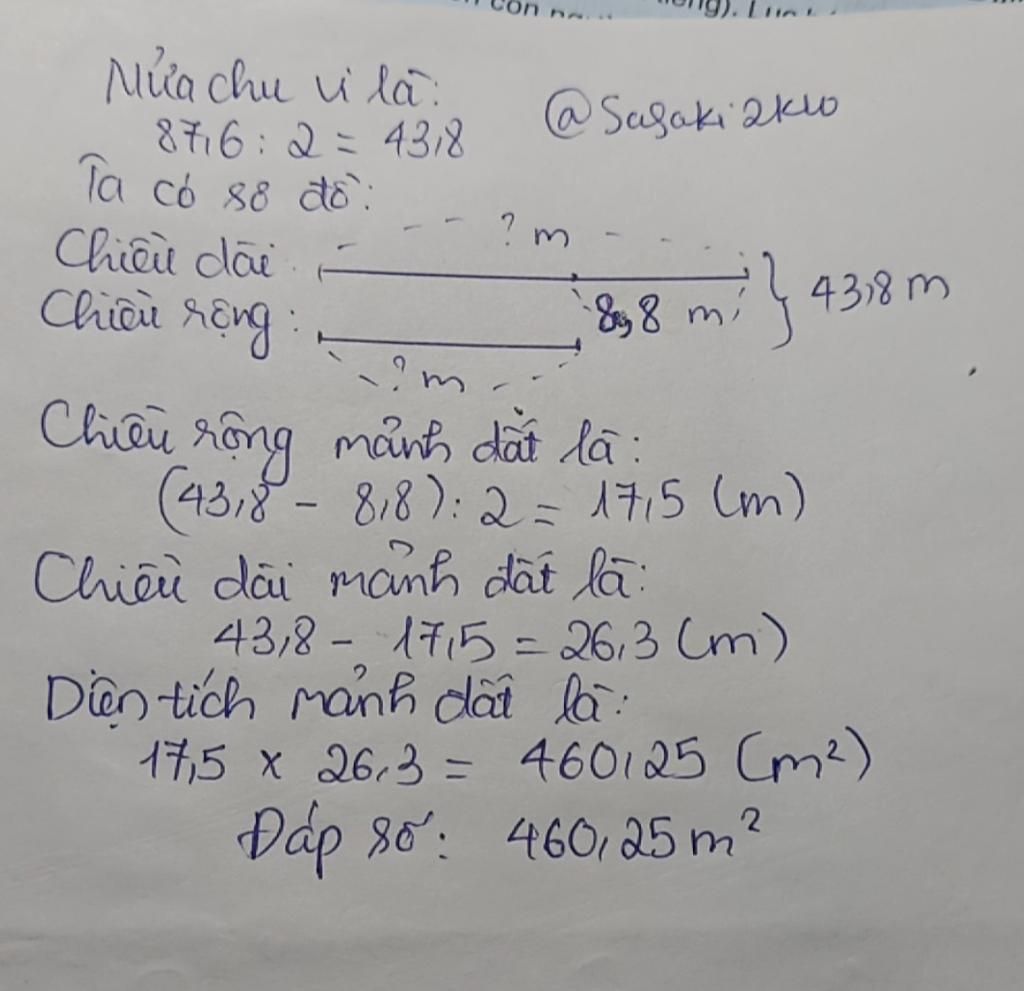 Nửa chu vi là:
@Sasaki2k10
87,6 : 2 = 43,8
Ta có sơ đồ:
? m
Chiều dài:
Chiều rộng:
8,8 m
43,8 m
? m
Chiều rộng mảnh đất là:
(43,8 - 8,8) : 2 = 17,5 (m)
Chiều dài mảnh đất là:
43,8 - 17,5 = 26,3 (m)
Diện tích mảnh đất là:
17,5 x 26,3 = 460,25 (m²)
Đáp số: 460,25 m²